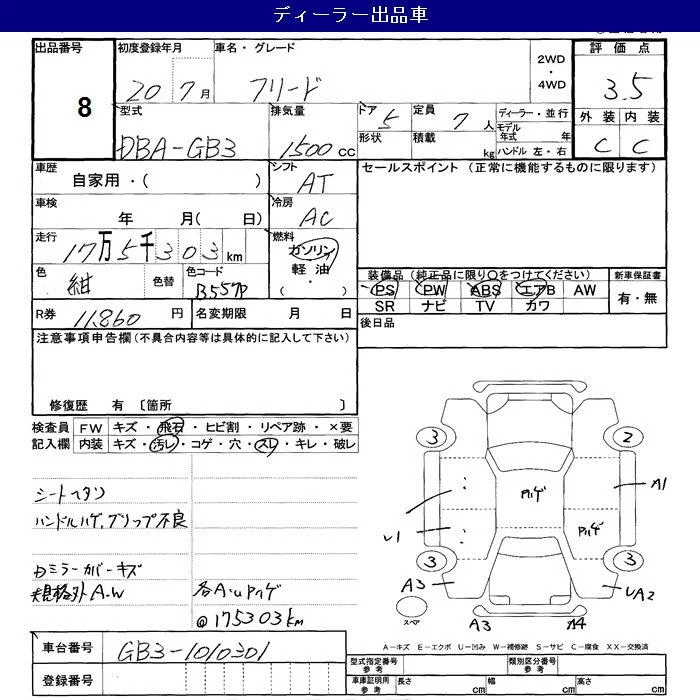 ディーラー出品車
出品番号 8
初度登録年月 20 7月
車名・グレード フリード
2WD・4WD
評価点 3.5
外装 内装
C C
型式 DBA-GB3
排気量 1500cc
ドア 5
形状
定員 7人
積載 kg
ディーラー・並行
モデル年式 年
ハンドル 左・右
車歴 自家用・( )
シフト AT
セールスポイント (正常に機能するものに限ります)
車検 年 月( 日)
冷房 AC
走行 17万5千303km
燃料 ガソリン・軽油・( )
色 紺
色替
色コード B557P
装備品(純正品に限り〇をつけてください)
PS PW ABS エアB AW
SR ナビ TV カワ
新車保証書
有・無
R券 11,860円
名変期限 月 日
後日品
注意事項申告欄(不具合内容等は具体的に記入して下さい)
修復歴 有 〔箇所 〕
検査員記入欄
FW キズ・飛石・ヒビ割・リペア跡・×要
内装 キズ・汚レ・コゲ・穴・スレ・キレ・破レ
シートヘタリ
ハンドルハゲ,グリップ不良
ミラーカバーキズ
規格外A.W
各A・UPハゲ
@175303km
3 2
U1 Pハゲ A1
Pハゲ
3 3
A3 UA2
スペア
A3 A4
A-キズ E-エクボ U-凹み W-補修跡 S-サビ C-腐食 XX-交換済
車台番号 GB3-1010301
登録番号
型式指定番号 参考
類別区分番号 参考
車庫証明用 参考
長さ cm 幅 cm 高さ cm